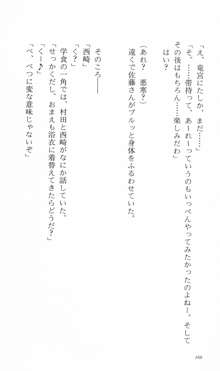 「え、竜宮にたしか、まだ……」
「そ、……帯持って、あーれーっていうのもいっぺんやってみたかったのよねー。そして
その後はもちろん……楽しみだわ」
「はい？」
（あれ？　悪寒？）
遠くで佐藤さんがブルッと身体をふるわせていた。
そのころ——
「西崎」
「く？」
学食の一角では、村田と西崎がなにか話していた。
「せっかくだし、おまえも浴衣に着替えてきたらどうだ？」
「くー♪」
「べ、べつに変な意味じゃないぞ」